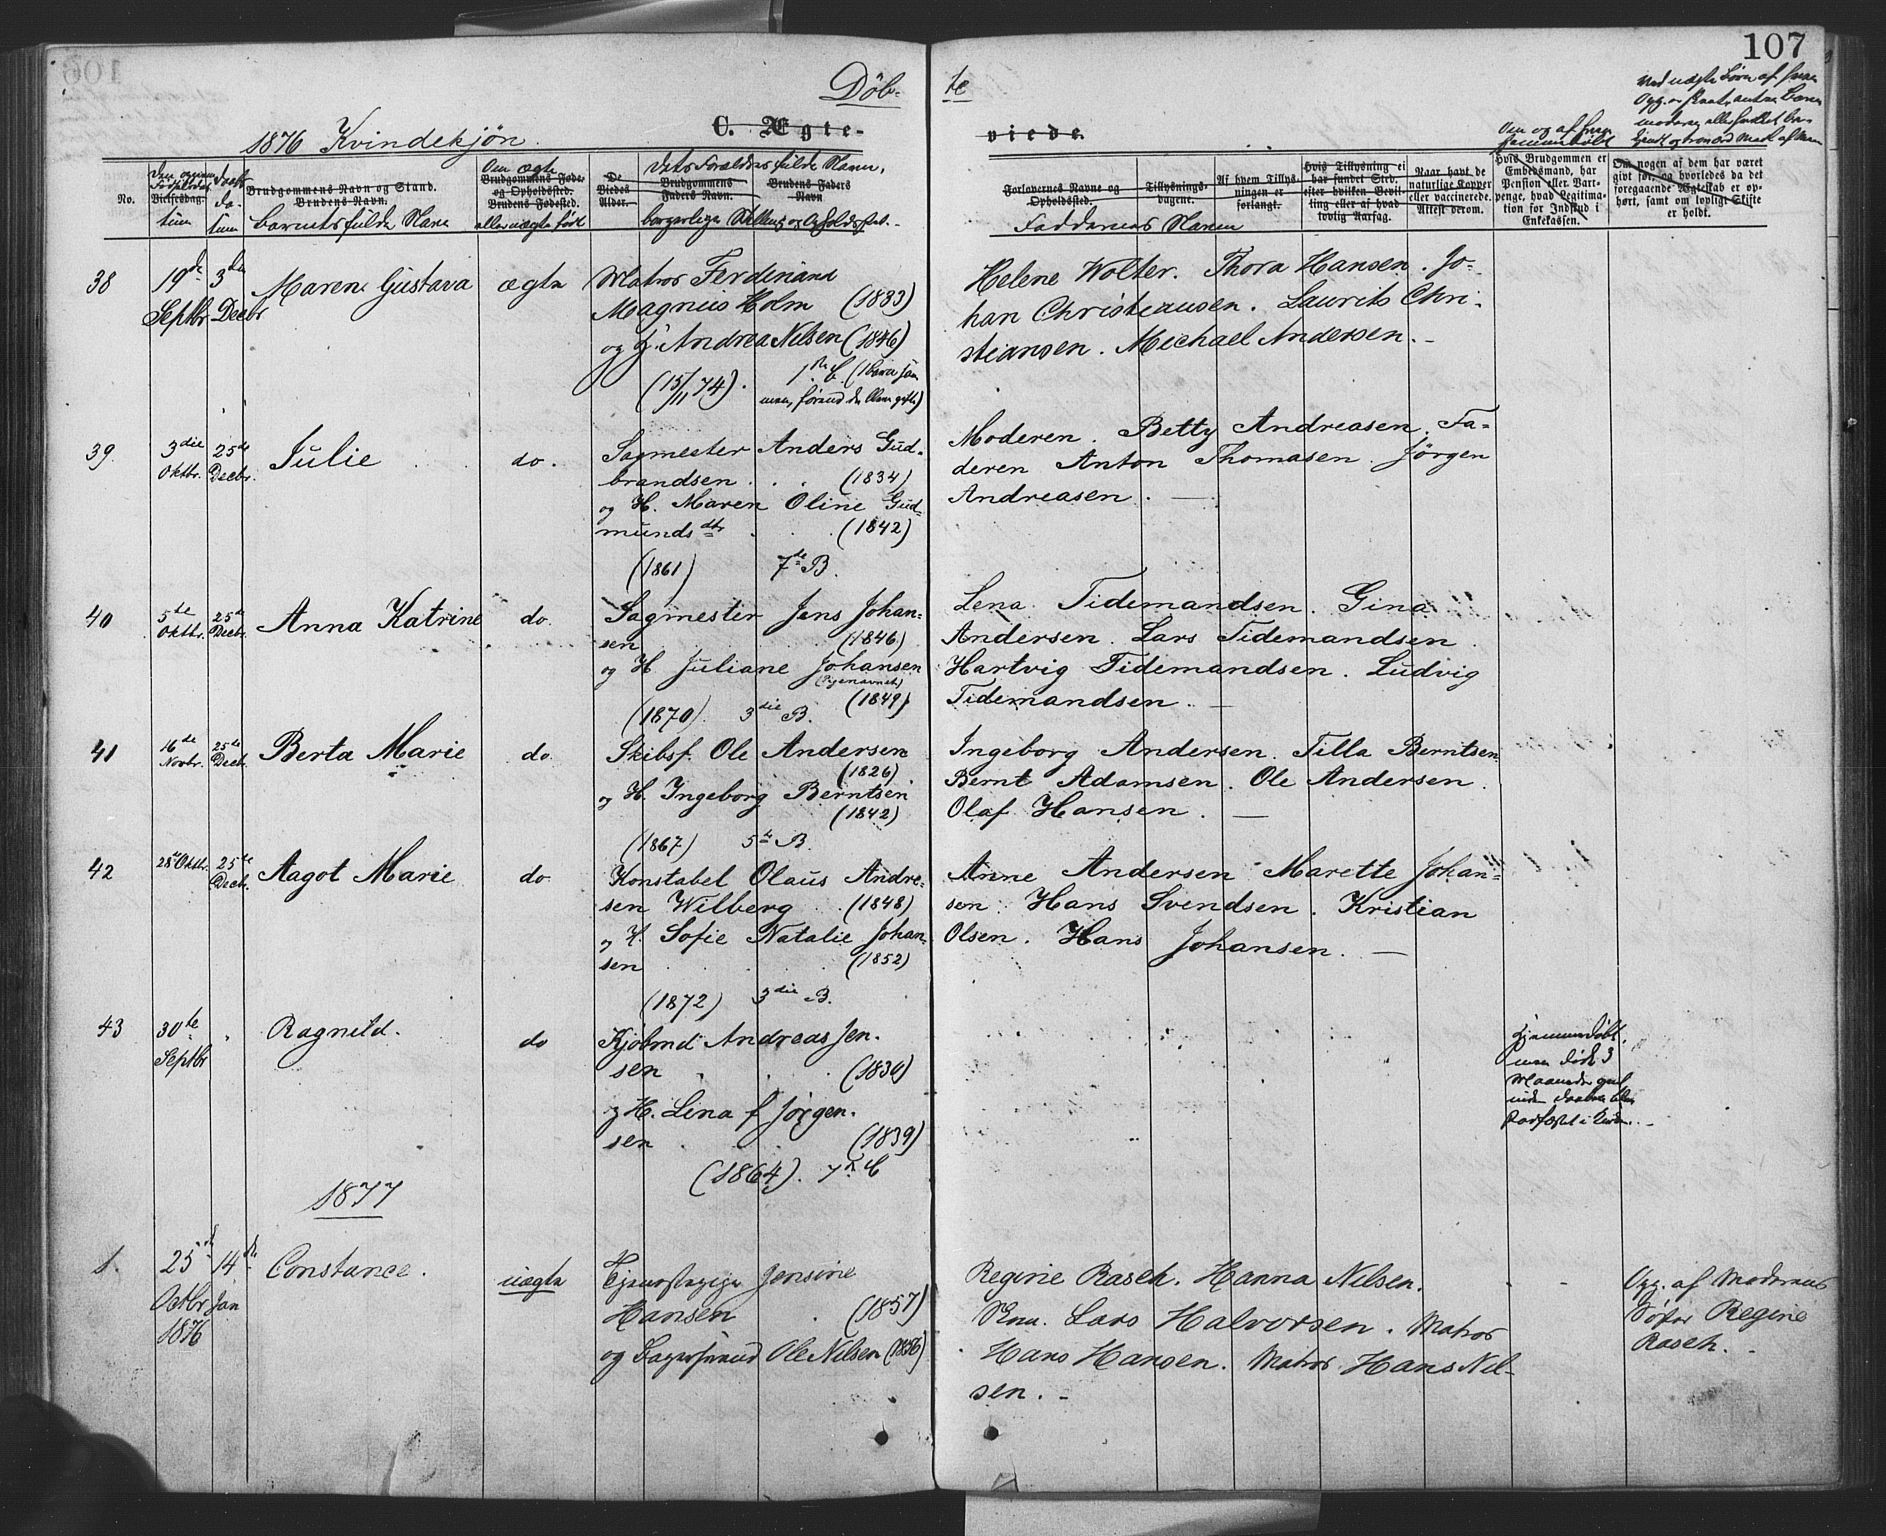 107
Døb- te
C. Ægte- viede.
1876 Kvindekjøn.
No.
Vielsesdag.
Brudgommens Navn og Stand.
Brudens Navn.
Barnets fulde Navn
Om ægte
Brudgommens Føde- og Opholdssted.
Brudens Fødested.
eller uægte født
De Viedes Alder.
Dets Forældres fulde Navn,
Brudgommens Faders Navn.
Brudens Faders Navn
borgerlige Stilling og Opholdssted.
Forlovernes Navne og Opholdssted.
Faddernes Navne
Tillysnings-dagene.
Af hvem Tillys-ningen er forlangt.
Hvis Tillysning ei har fundet Sted, efter hvilken Bevil-ling eller af hvad lovlig Aarsag.
Naar havt de naturlige Kopper eller vaccinerede. Attest derom.
Om og af hvem hjemmedøbt
Hvis Brudgommen er Embedsmand, har Pension eller Vart-penge, hvad Legitima-tion for Indskud i Enkekassen.
Om nogen af dem har været gift før, og hvorledes da det foregaaende Ægteskab er op-hørt, samt om lovligt Skifte er holdt.
38
19de Septbr
3de Decbr
Marene Gustava
ægte
Matros Ferdinand
Magnus Holm (1833)
og H. Andrea Nilsen (1846)
(15/11 74).
Helene Wolter. Thora Hansen. Jo-
han Christiansen. Laurits Chri-
stiansen. Michael Andersen. -
39
3die Oktbr.
25de Decbr.
Julie
do.
Sagmester Anders Gud-
brandsen . . (1834)
og H. Maren Oline Gud-
munds dtr (1842)
(1861) 7de B.
Moderen. Betty Andreasen. Fa-
deren Anton Thomasen. Jörgen
Andreasen. —
40
5te Oktbr.
25de Decbr.
Anna Katrine
do.
Sagmester Jens Johan-
sen (1846)
og H Juliane Johansen
(Pigenavnet)
(1849)
(1870). 3die B.
Lena Tidemandsen. Gina
Andersen. Lars Tidemandsen.
Hartvig Tidemandsen. Ludvig
Tidemandsen. —
41
16de Novbr.
25de Decbr.
Berta Marie
do.
Skibsf. Ole Andersen
(1826)
og H. Ingeborg Berntsen
(1842)
(1867) 5te B.
Ingeborg Andersen. Tilla Berntsen.
Bernt Adamsen. Ole Andersen.
Olaf Hansen. —
42
28de Oktbr.
25de Decbr.
Aagot Marie
do.
Konstabel Olaus Andre-
sen Wilberg (1848)
og H. Sofie Natalie Johan-
sen (1852)
(1872) 3die B.
Anne Andersen Marette Johan-
sen. Hans Svendsen. Kristian
Olsen. Hans Johansen. —
43
30te Septbr
Ragnild.
do
Kjöbmd Andreas Jen-
sen (1830)
og H. Lina f. Jørgen-
sen (1839)
(1864). 7de
Hjemmedøbt,
men død 3
Maaneder gml
1877
1.
25de Octbr 1876
14de Jan
Constance.
uægte
Tjenestepige Jensine
Hansen (1857)
og Ole Nilsen (1856)
Regine Rasch. Hanna Nilsen.
Lars Halvorsen. Matros
Hans Hansen. Matros Hans Nil-
sen. -
Opg. af Moderens
Søster Regine
Rasch.